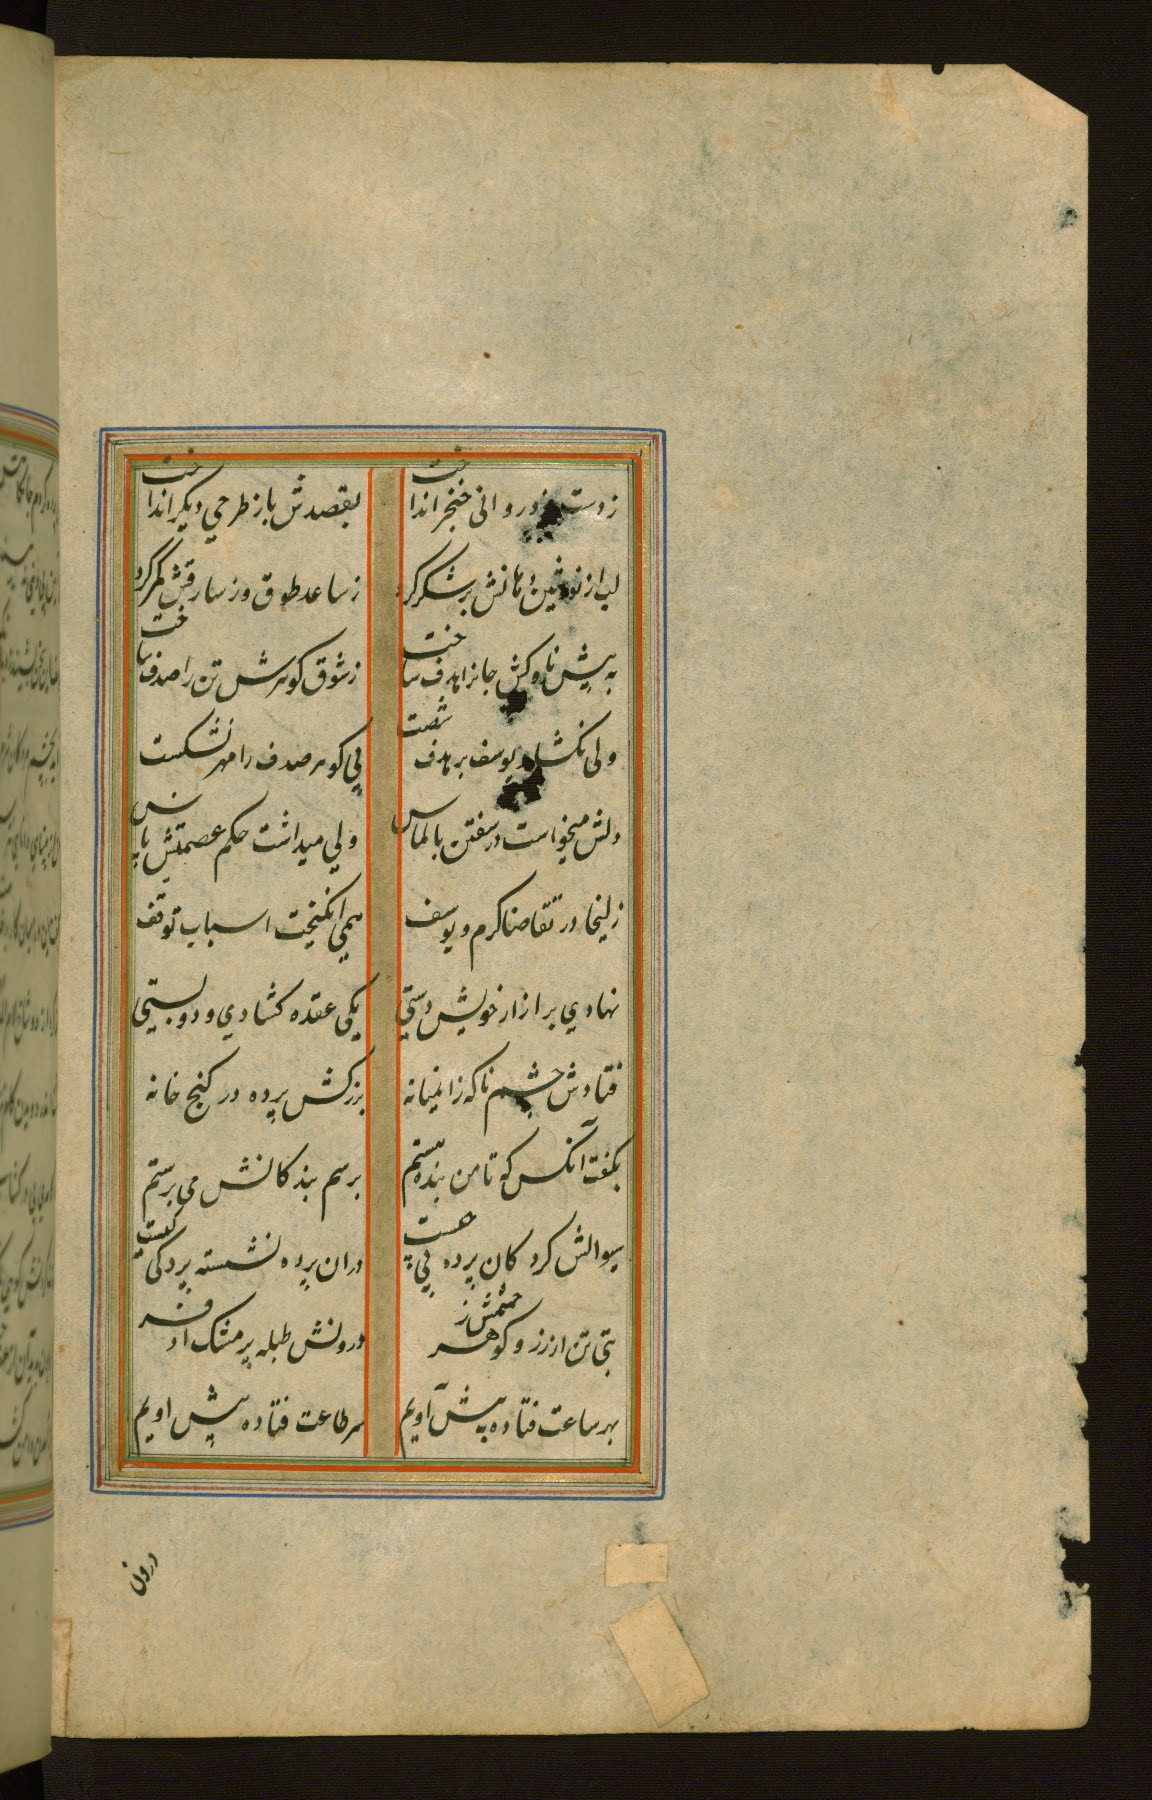 ز دست خود روانی خنجر انداخت بقصدش باز طرحی دیکر انداخت
لب از نوشین دهانش پر شکر کرد ز ساعد طوق وز ساقش کمر کرد
به پیش ناوکش جانرا هدف ساخت ز شوق کوهرش تن را صدف ساخت
ولی نکشاد یوسف بر هدف شصت پی کوهر صدف را مهر نشکست
دلش میخواست در سفتن بالماس ولی میداشت حکم عصمتش پاس
زلیخا در تقاضا کرم و یوسف همی انکیخت اسباب توقف
نهادی بر ازار خویش دستی یکی عقده کشادی و دو بستی
فتادش چشم ناکه زانمیانه بزرکش پرده در کنج خانه
بکفت آنکس که تا من بنده هستم برسم بندکانش می پرستم
سوالش کرد کان پرده پی چیست در ان پرده نشسته پردکی کیست
بتی تن از زر و چشمش ز کوهر درونش طبله پر مشک اذفر
بهر ساعت فتاده به پیش آویم سر طاعت فتاده پیش اویم
درون